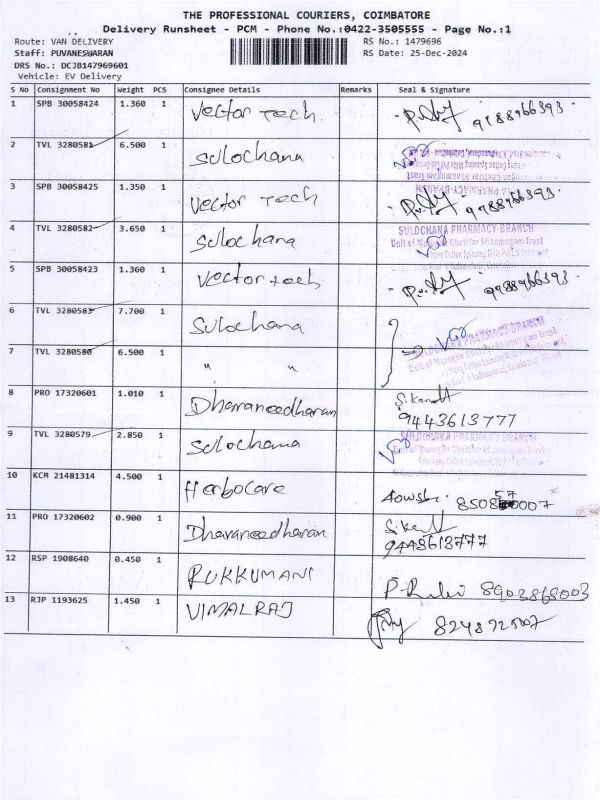 THE PROFESSIONAL COURIERS, COIMBATORE
Delivery Runsheet - PCM - Phone No.:0422-3505555 - Page No.:1
Route: VAN DELIVERY
RS No.: 1479696
Staff: PUVANESWARAN
RS Date: 25-Dec-2024
DRS No.: DCJB147969601
Vehicle: EV Delivery
S No Consignment No Weight PCS Consignee Details Remarks Seal & Signature
1 SPB 30058424 1.360 1 Vector Tech. 9788966393
2 TVL 3280581 6.500 1 Sulochana
3 SPB 30058425 1.350 1 Vector Tech 9788966393
4 TVL 3280582 3.650 1 Sulochana SULOCHANA PHARMACY-BRANCH
Unit of Murugan Chettiar Shanmugam Trust
5 SPB 30058423 1.360 1 Vector tech 9788966393
6 TVL 3280583 7.700 1 Sulochana SULOCHANA PHARMACY-BRANCH
7 TVL 3280580 6.500 1 " "
8 PRO 17320601 1.010 1 Dharaneedharan 9443613777
9 TVL 3280579 2.850 1 Sulochana SULOCHANA PHARMACY-BRANCH
10 KCM 21481314 4.500 1 Herbocare
11 PRO 17320602 0.900 1 Dharaneedharan 9443613777
12 RSP 1908640 0.450 1 RUKKUMANI 8903868003
13 RJP 1193625 1.450 1 VIMALRAJ